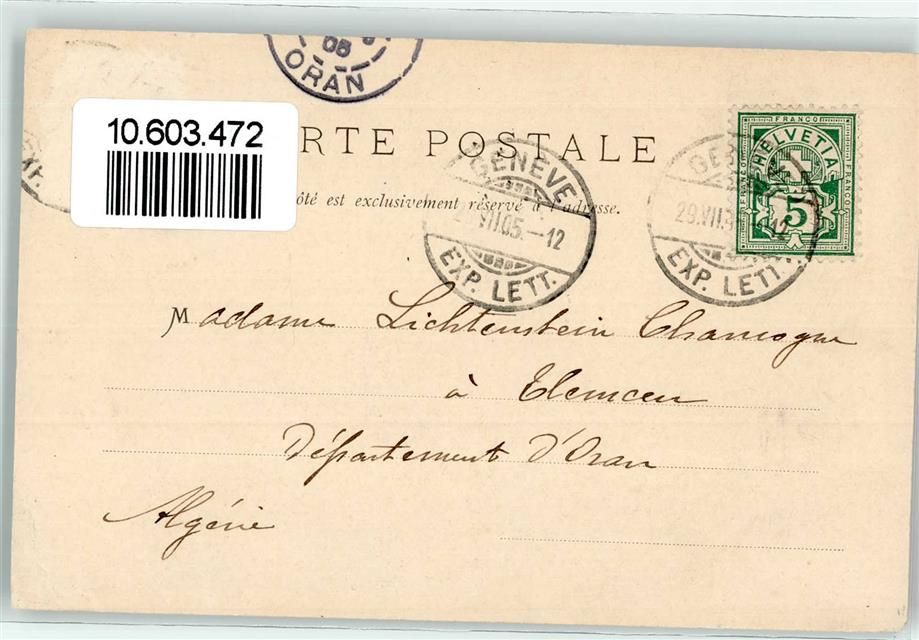 05
ORAN
10.603.472
RTE POSTALE
ôté est exclusivement réservé à l'adresse.
GENÈVE
VII.05.-12
EXP. LETT.
GE
29.VII. 12
EXP. LETT.
FRANCO
HELVETIA
FRANCO
FRANCO
5
XP.
Madame Lichtenstein
à Tlemcen
Département d'Oran
Algérie